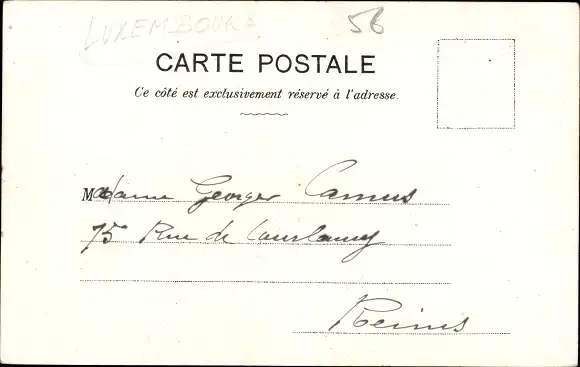 LUXEMBOURG
56
CARTE POSTALE
Ce côté est exclusivement réservé à l'adresse.
Madame Georges Camus
75 Rue de Courlancy
Reims